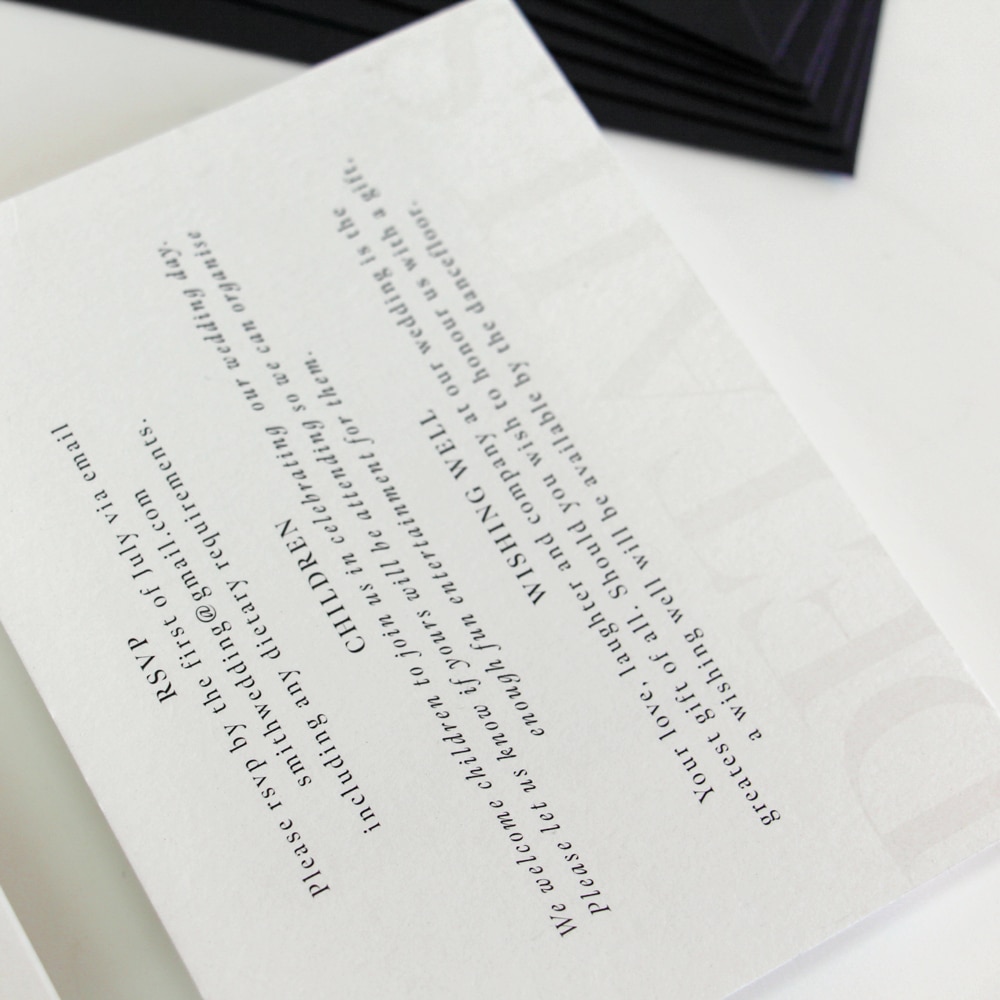 RSVP
Please rsvp by the first of July via email
smithwedding@gmail.com
including any dietary requirements.
CHILDREN
We welcome children to join us in celebrating our wedding day.
Please let us know if yours will be attending so we can organise
enough fun entertainment for them.
WISHING WELL
Your love, laughter and company at our wedding is the
greatest gift of all. Should you wish to honour us with a gift,
a wishing well will be available by the dancefloor.